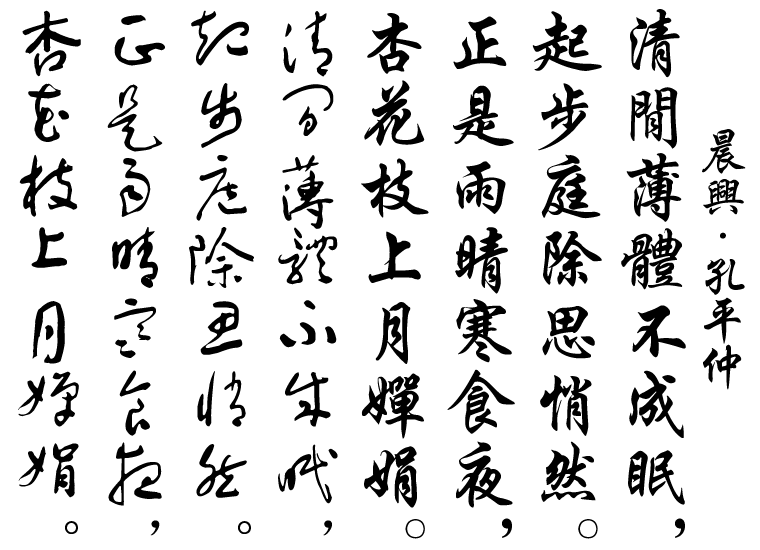 晨興·孔平仲
清閒薄體不成眠，
起步庭除思悄然。
正是雨晴寒食夜，
杏花枝上月嬋娟。
清閒薄體不成眠，
起步庭除思悄然。
正是雨晴寒食夜，
杏花枝上月嬋娟。